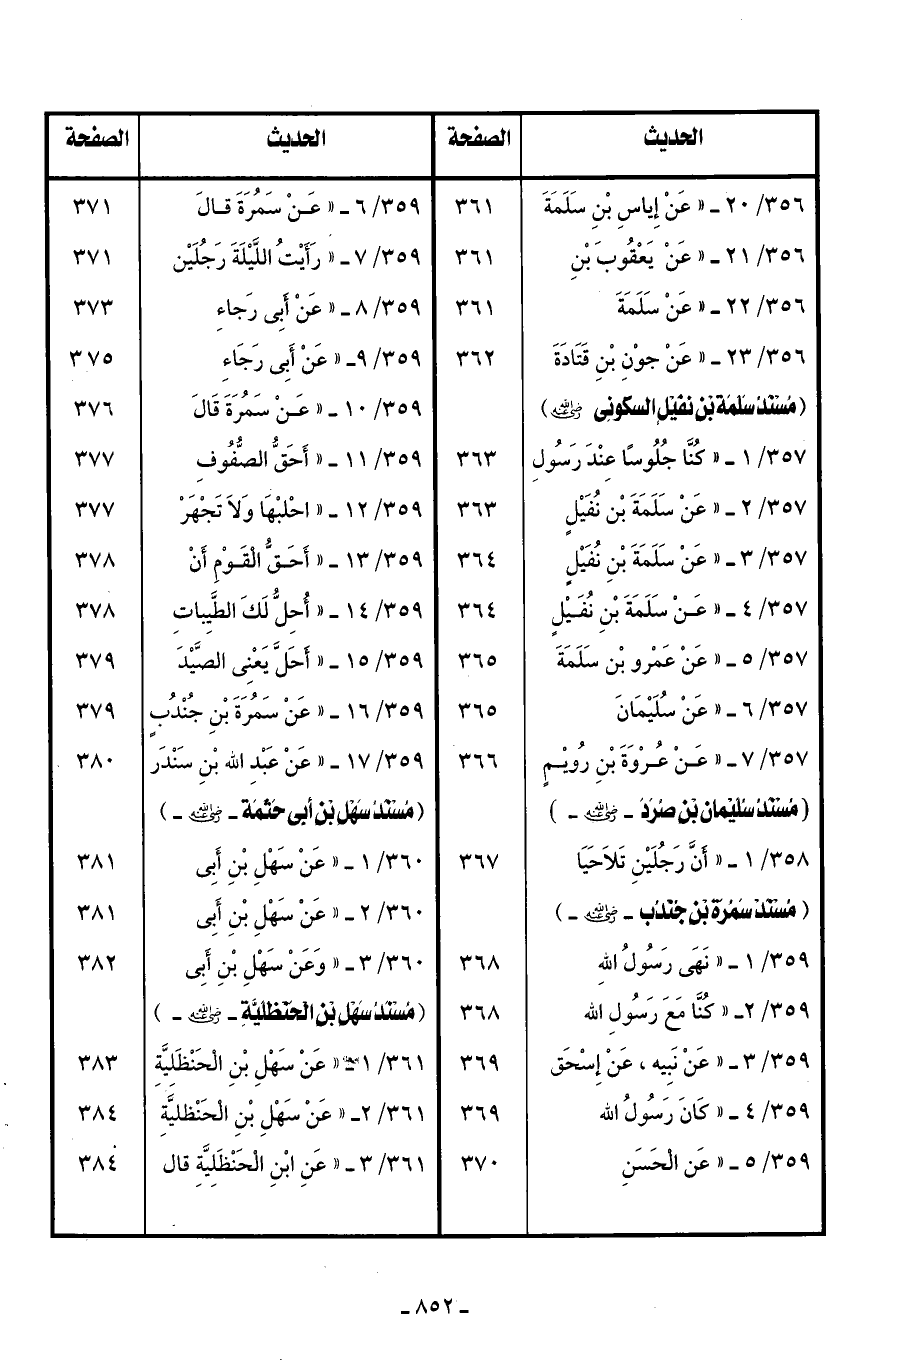 الحديث الصفحة
٢٠/٣٥٦ ـ « عَنْ إِياسِ بْنِ سَلَمَةَ ٣٦١
٢١/٣٥٦ ـ « عَنْ يَعْقُوبَ بْنِ ٣٦١
٢٢/٣٥٦ ـ « عَنْ سَلَمَةَ ٣٦١
٢٣/٣٥٦ ـ « عَنْ جوْنِ بْنِ قَتَادَةَ ٣٦٢
( مُسْنَدُ سَلمة بْن نفيْلٍ السكونى ﵁ )
١/٣٥٧ ـ « كُنَّا جُلُوسًا عِنْدَ رَسُولِ ٣٦٣
٢/٣٥٧ ـ « عَنْ سَلَمَةَ بْنِ نُفَيْلٍ ٣٦٣
٣/٣٥٧ ـ « عَنْ سَلَمَةَ بْنِ نُفَيْلٍ ٣٦٤
٤/٣٥٧ ـ « عَنْ سَلَمَةَ بْنِ نُفَيْلٍ ٣٦٤
٥/٣٥٧ ـ « عَنْ عَمْرِو بْنِ سَلَمَةَ ٣٦٥
٦/٣٥٧ ـ « عَنْ سُلَيْمَانَ ٣٦٥
٧/٣٥٧ ـ « عَنْ عُرْوَةَ بْنِ رُوَيْمٍ ٣٦٦
( مُسْنَدُ سُليْمان بْن صُرَدَ ـ ﵁ ـ )
١/٣٥٨ ـ « أَنَّ رَجُلَيْنِ تَلاَحَيَا ٣٦٧
( مُسْنَدُ سَمُرة بْن جُنْدُب ـ ﵁ ـ )
١/٣٥٩ ـ « نَهَى رَسُولُ اللهِ ٣٦٨
٢/٣٥٩ـ « كُنَّا مَعَ رَسُولِ الله ٣٦٨
٣/٣٥٩ ـ « عَنْ نَبِيه ، عَنْ إِسْحَق ٣٦٩
٤/٣٥٩ ـ « كَانَ رَسُولُ الله ٣٦٩
٥/٣٥٩ ـ « عَنِ الْحَسَنِ ٣٧٠
الحديث الصفحة
٦/٣٥٩ ـ « عَنْ سَمُرَةَ قالَ ٣٧١
٧/٣٥٩ـ « رَأَيْتُ اللَّيْلَةَ رَجُلَيْنِ ٣٧١
٨/٣٥٩ ـ « عَنْ أَبِى رَجاءِ ٣٧٣
٩/٣٥٩ـ « عَنْ أَبِى رَجَاءِ ٣٧٥
١٠/٣٥٩ ـ « عَنْ سَمُرَةَ قَالَ ٣٧٦
١١/٣٥٩ ـ « أَحَقُّ الصُّفُوفِ ٣٧٧
١٢/٣٥٩ ـ « احْلبْهَا وَلاَ تَجْهَرْ ٣٧٧
١٣/٣٥٩ ـ « أَحَقُّ الْقَوْمِ أَنْ ٣٧٨
١٤/٣٥٩ ـ « أُحِلُّ لَكَ الطَّيِّباتِ ٣٧٨
١٥/٣٥٩ ـ « أَحَلَّ يَعْنِى الصَّيْدَ ٣٧٩
١٦/٣٥٩ ـ « عَنْ سَمُرَةَ بْنِ جُنْدُبٍ ٣٧٩
١٧/٣٥٩ ـ « عَنْ عَبْدِ الله بْنِ سَنْدَر ٣٨٠
( مُسْنَدُ سَهْل بْن أبى حَثمَة ـ ﵁ ـ )
١/٣٦٠ ـ « عَنْ سَهْلِ بْنِ أَبِى ٣٨١
٢/٣٦٠ ـ « عَنْ سَهْلِ بْنِ أَبِى ٣٨١
٣/٣٦٠ ـ « وَعَنْ سَهْلِ بْنِ أَبِى ٣٨٢
( مُسْنَدُ سَهْل بْن الحَنظليَّة ـ ﵁ ـ )
١/٣٦١ ـ « عَنْ سَهْلِ بْنِ الْحَنْظَلِيَّةِ ٣٨٣
٢/٣٦١ـ « عَنْ سَهْلِ بْنِ الْحَنْظَلِيَّةِ ٣٨٤
٣/٣٦١ ـ « عَنِ ابْنِ الْحَنْظَلِيَّةِ قال ٣٨٤
ـ ٨٥٢ ـ